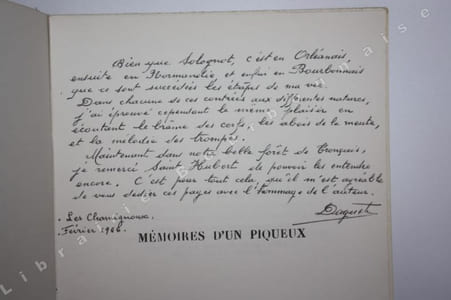 Bien que Solognot, c'est en Orléanais,
ensuite en Normandie, et enfin en Bourbonnais
que ce sont succédées les étapes de ma vie.
Dans chacune de ces contrées aux différentes natures,
j'ai éprouvé cependant le même plaisir en
écoutant le brâme des cerfs, les abois de la meute,
et la mélodie des trompes.
Maintenant dans notre belle forêt de Tronçais,
je remercie Saint Hubert de pouvoir les entendre
encore. C'est pour tout cela, qu'il m'est agréable
de vous dédier ces pages avec l'hommage de l'auteur.
Les Chamignoux.
Février 1966.
Daguet
MÉMOIRES D'UN PIQUEUX